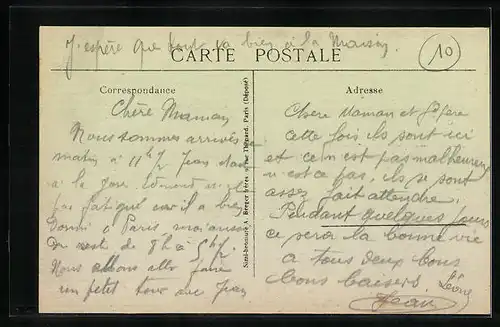 J'espère que tout va bien à la Maison.
10
CARTE POSTALE
Correspondance
Adresse
Chère Maman
Nous sommes arrivés ce
matin à 11h½ Jean était
à la gare.
pas fatigué car il a bien
Dormi à Paris moi aussi
De 7h à 9h½
Nous allons aller faire
un petit tour avec Jean
Simi-bromure A. Breger frères 9, rue Thénard, Paris (Déposé)
Chere Maman et
cette fois ils sont ici
et ce n'est pas malheureux
n'est ce pas, ils se sont
assez fait attendre.
Pendant quelques jours
ce sera la bonne vie
a tous deux bons
bons baisers.
Jean